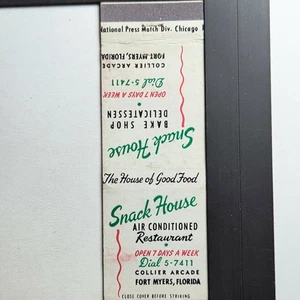 National Press Match Div. Chicago
FORT MYERS, FLORIDA
COLLIER ARCADE
Dial 5-7411
OPEN 7 DAYS A WEEK
DELICATESSEN
BAKE SHOP
Snack House
The House of Good Food
Snack House
AIR CONDITIONED
Restaurant
OPEN 7 DAYS A WEEK
Dial 5-7411
COLLIER ARCADE
FORT MYERS, FLORIDA
CLOSE COVER BEFORE STRIKING